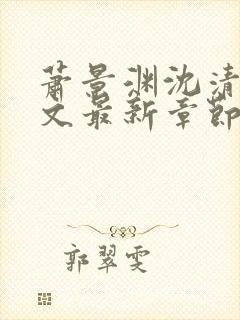 萧景渊沈清
文最新章节
郭翠雯